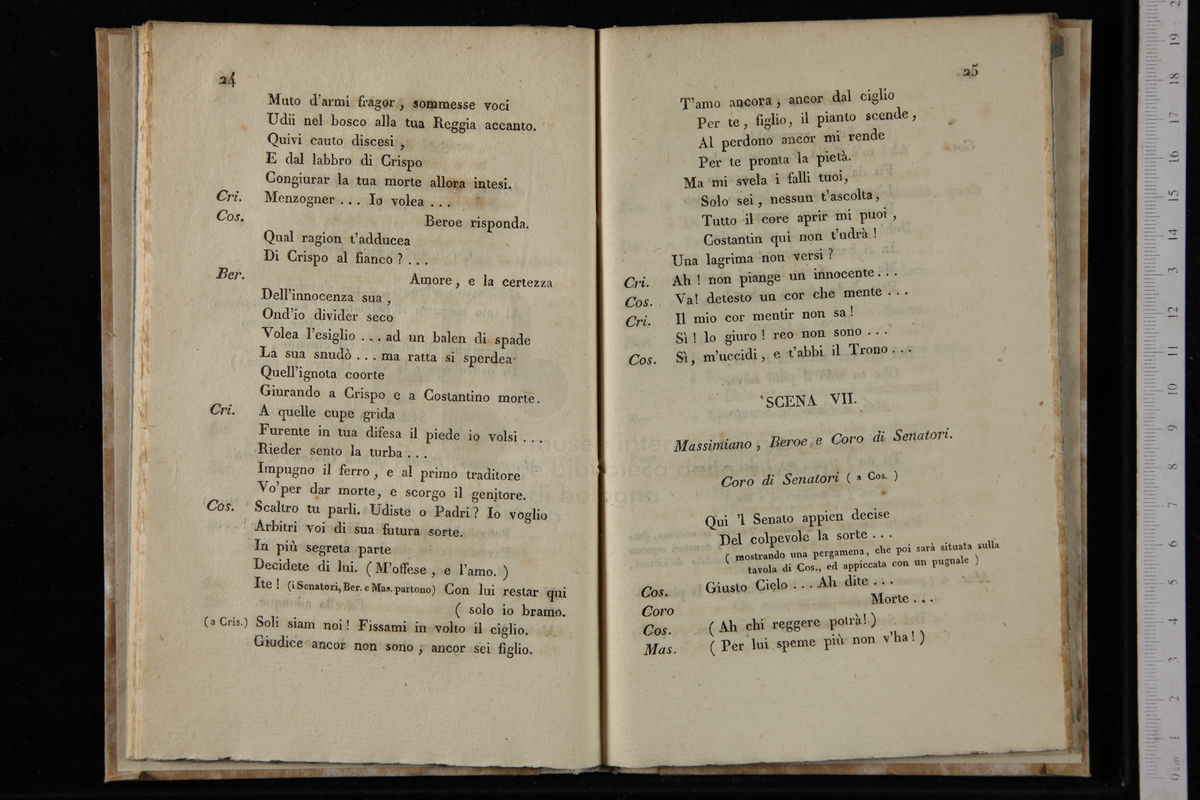 24
Muto d'armi fragor, sommesse voci
Udii nel bosco alla tua Reggia accanto.
Quivi cauto discesi,
E dal labbro di Crispo
Congiurar la tua morte allora intesi.
Cri. Menzogner . . . Io volea . . .
Cos. Beroe risponda.
Qual ragion t'adducea
Di Crispo al fianco ? . . .
Ber. Amore, e la certezza
Dell'innocenza sua,
Ond'io divider seco
Volea l'esiglio . . . ad un balen di spade
La sua snudò . . . ma ratta si sperdea
Quell'ignota coorte
Giurando a Crispo e a Costantino morte.
Cri. A quelle cupe grida
Furente in tua difesa il piede io volsi . . .
Rieder sento la turba . . .
Impugno il ferro, e al primo traditore
Vo'per dar morte, e scorgo il genitore.
Cos. Scaltro tu parli. Udiste o Padri? Io voglio
Arbitri voi di sua futura sorte.
In più segreta parte
Decidete di lui. ( M'offese, e l'amo. )
Ite ! (i Senatori, Ber. e Mas. partono) Con lui restar qui
( solo io bramo.
(a Cris.) Soli siam noi! Fissami in volto il ciglio.
Giudice ancor non sono, ancor sei figlio.
25
T'amo ancora, ancor dal ciglio
Per te, figlio, il pianto scende,
Al perdono ancor mi rende
Per te pronta la pietà.
Ma mi svela i falli tuoi,
Solo sei, nessun t'ascolta,
Tutto il core aprir mi puoi,
Costantin qui non t'udrà !
Una lagrima non versi ?
Cri. Ah ! non piange un innocente . . .
Cos. Va! detesto un cor che mente . . .
Cri. Il mio cor mentir non sa !
Sì ! lo giuro ! reo non sono . . .
Cos. Sì, m'uccidi, e t'abbi il Trono . . .
SCENA VII.
Massimiano, Beroe, e Coro di Senatori.
Coro di Senatori ( a Cos. )
Qui 'l Senato appien decise
Del colpevole la sorte . . .
( mostrando una pergamena, che poi sarà situata sulla
tavola di Cos., ed appiccata con un pugnale )
Cos. Giusto Cielo . . . Ah dite . . .
Coro Morte . . .
Cos. ( Ah chi reggere potrà! )
Mas. ( Per lui speme più non v'ha ! )